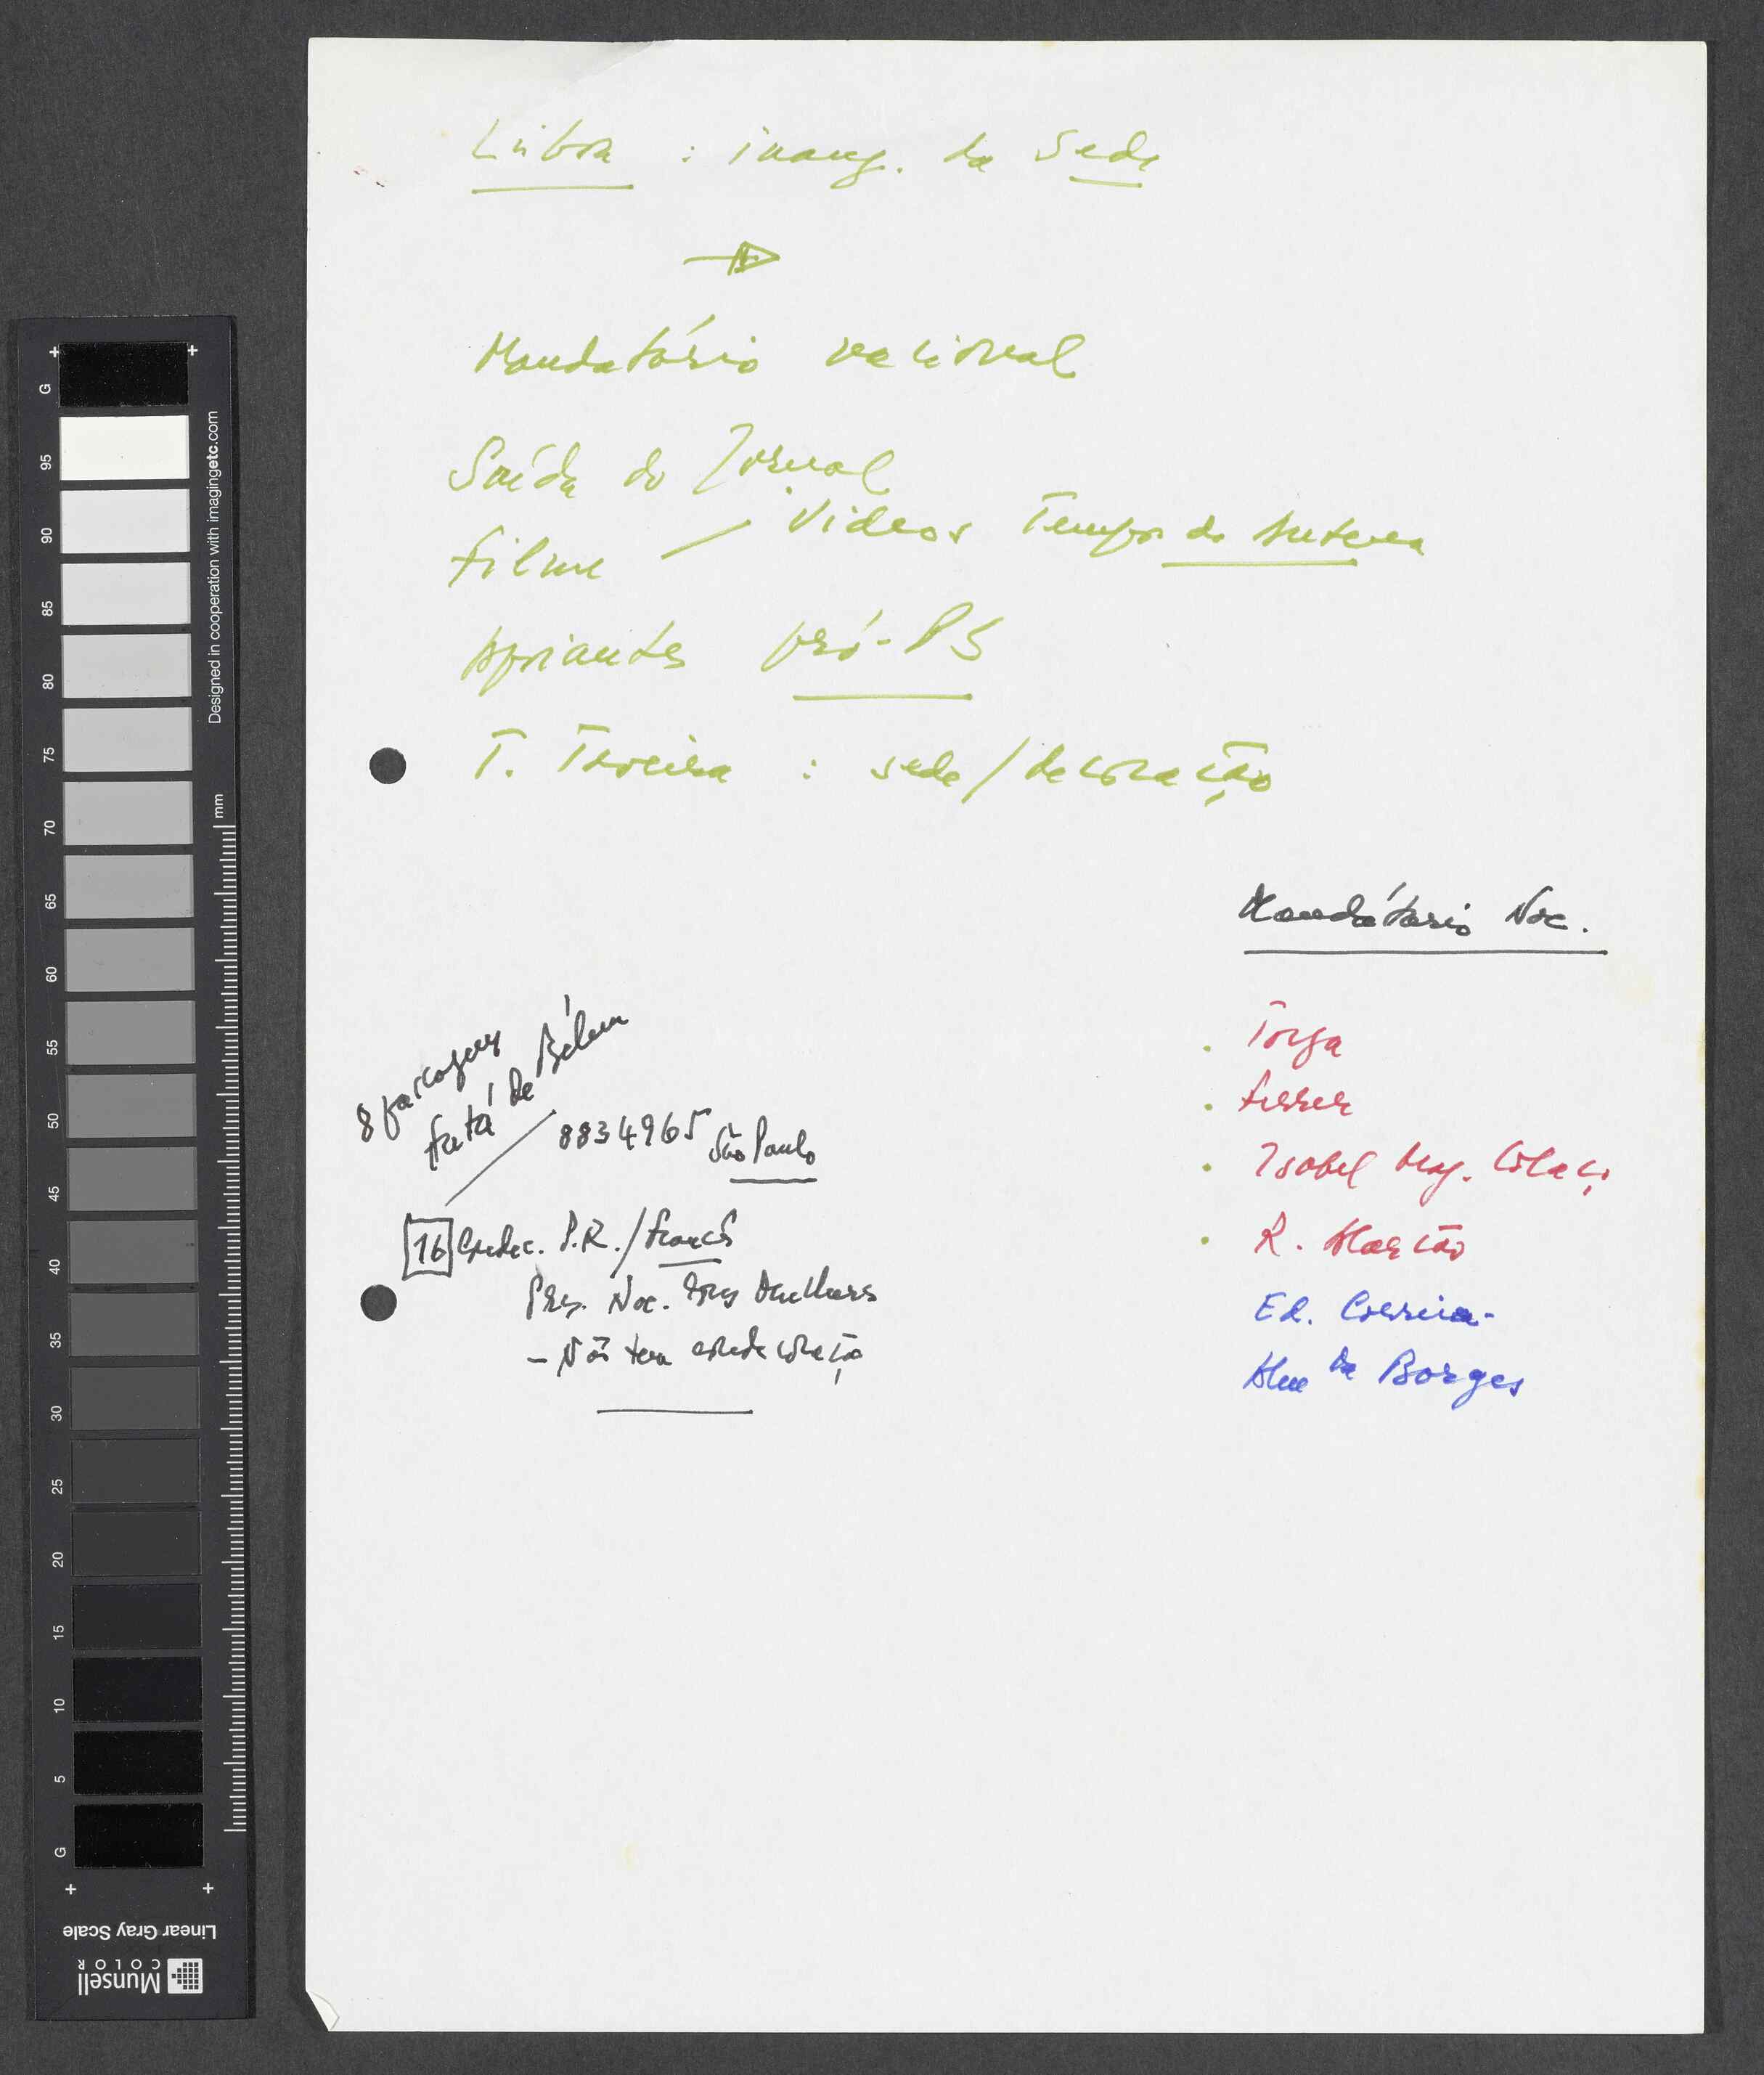 Lisboa : inaug. da Sede
Mandatário nacional
Saída do Jornal
Filme / Videos Tempos de Antena
Apoiantes pró-PS
T. Taveira : sede/decoração
Mandátario Nac.
Torga
Ferrer
Isabel Mag. Colaço
R. Alarcão
Ed. Correia
da Borges
8
Fafá de Belém
8834965 São Paulo
16 Condec. P.R./Francês
Pres. Nac. das Mulheres
- Não tem condecoração
G
95
90
85
80
75
70
65
60
55
50
45
40
35
30
25
20
15
10
5
G
mm
Designed in cooperation with imagingetc.com
Linear Gray Scale
Munsell
COLOR